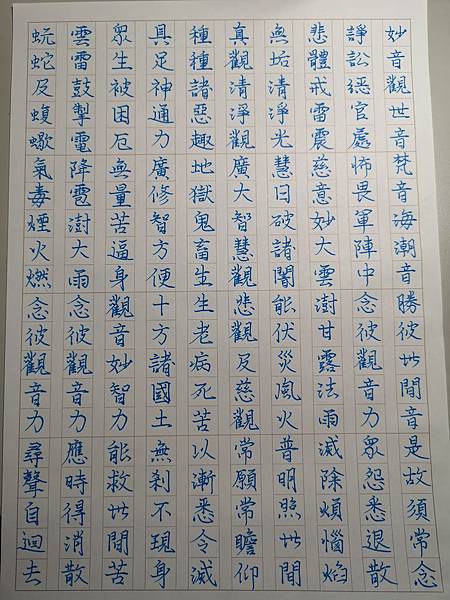 妙音觀世音梵音海潮音勝彼世間音是故須常念
諍訟經官處怖畏軍陣中念彼觀音力眾怨悉退散
悲體戒雷震慈意妙大雲澍甘露法雨滅除煩惱焰
無垢清淨光慧日破諸闇能伏災風火普明照世間
真觀清淨觀廣大智慧觀悲觀及慈觀常願常瞻仰
種種諸惡趣地獄鬼畜生生老病死苦以漸悉令滅
具足神通力廣修智方便十方諸國土無剎不現身
眾生被困厄無量苦逼身觀音妙智力能救世間苦
雲雷鼓掣電降雹澍大雨念彼觀音力應時得消散
蚖蛇及蝮蠍氣毒煙火燃念彼觀音力尋聲自迴去